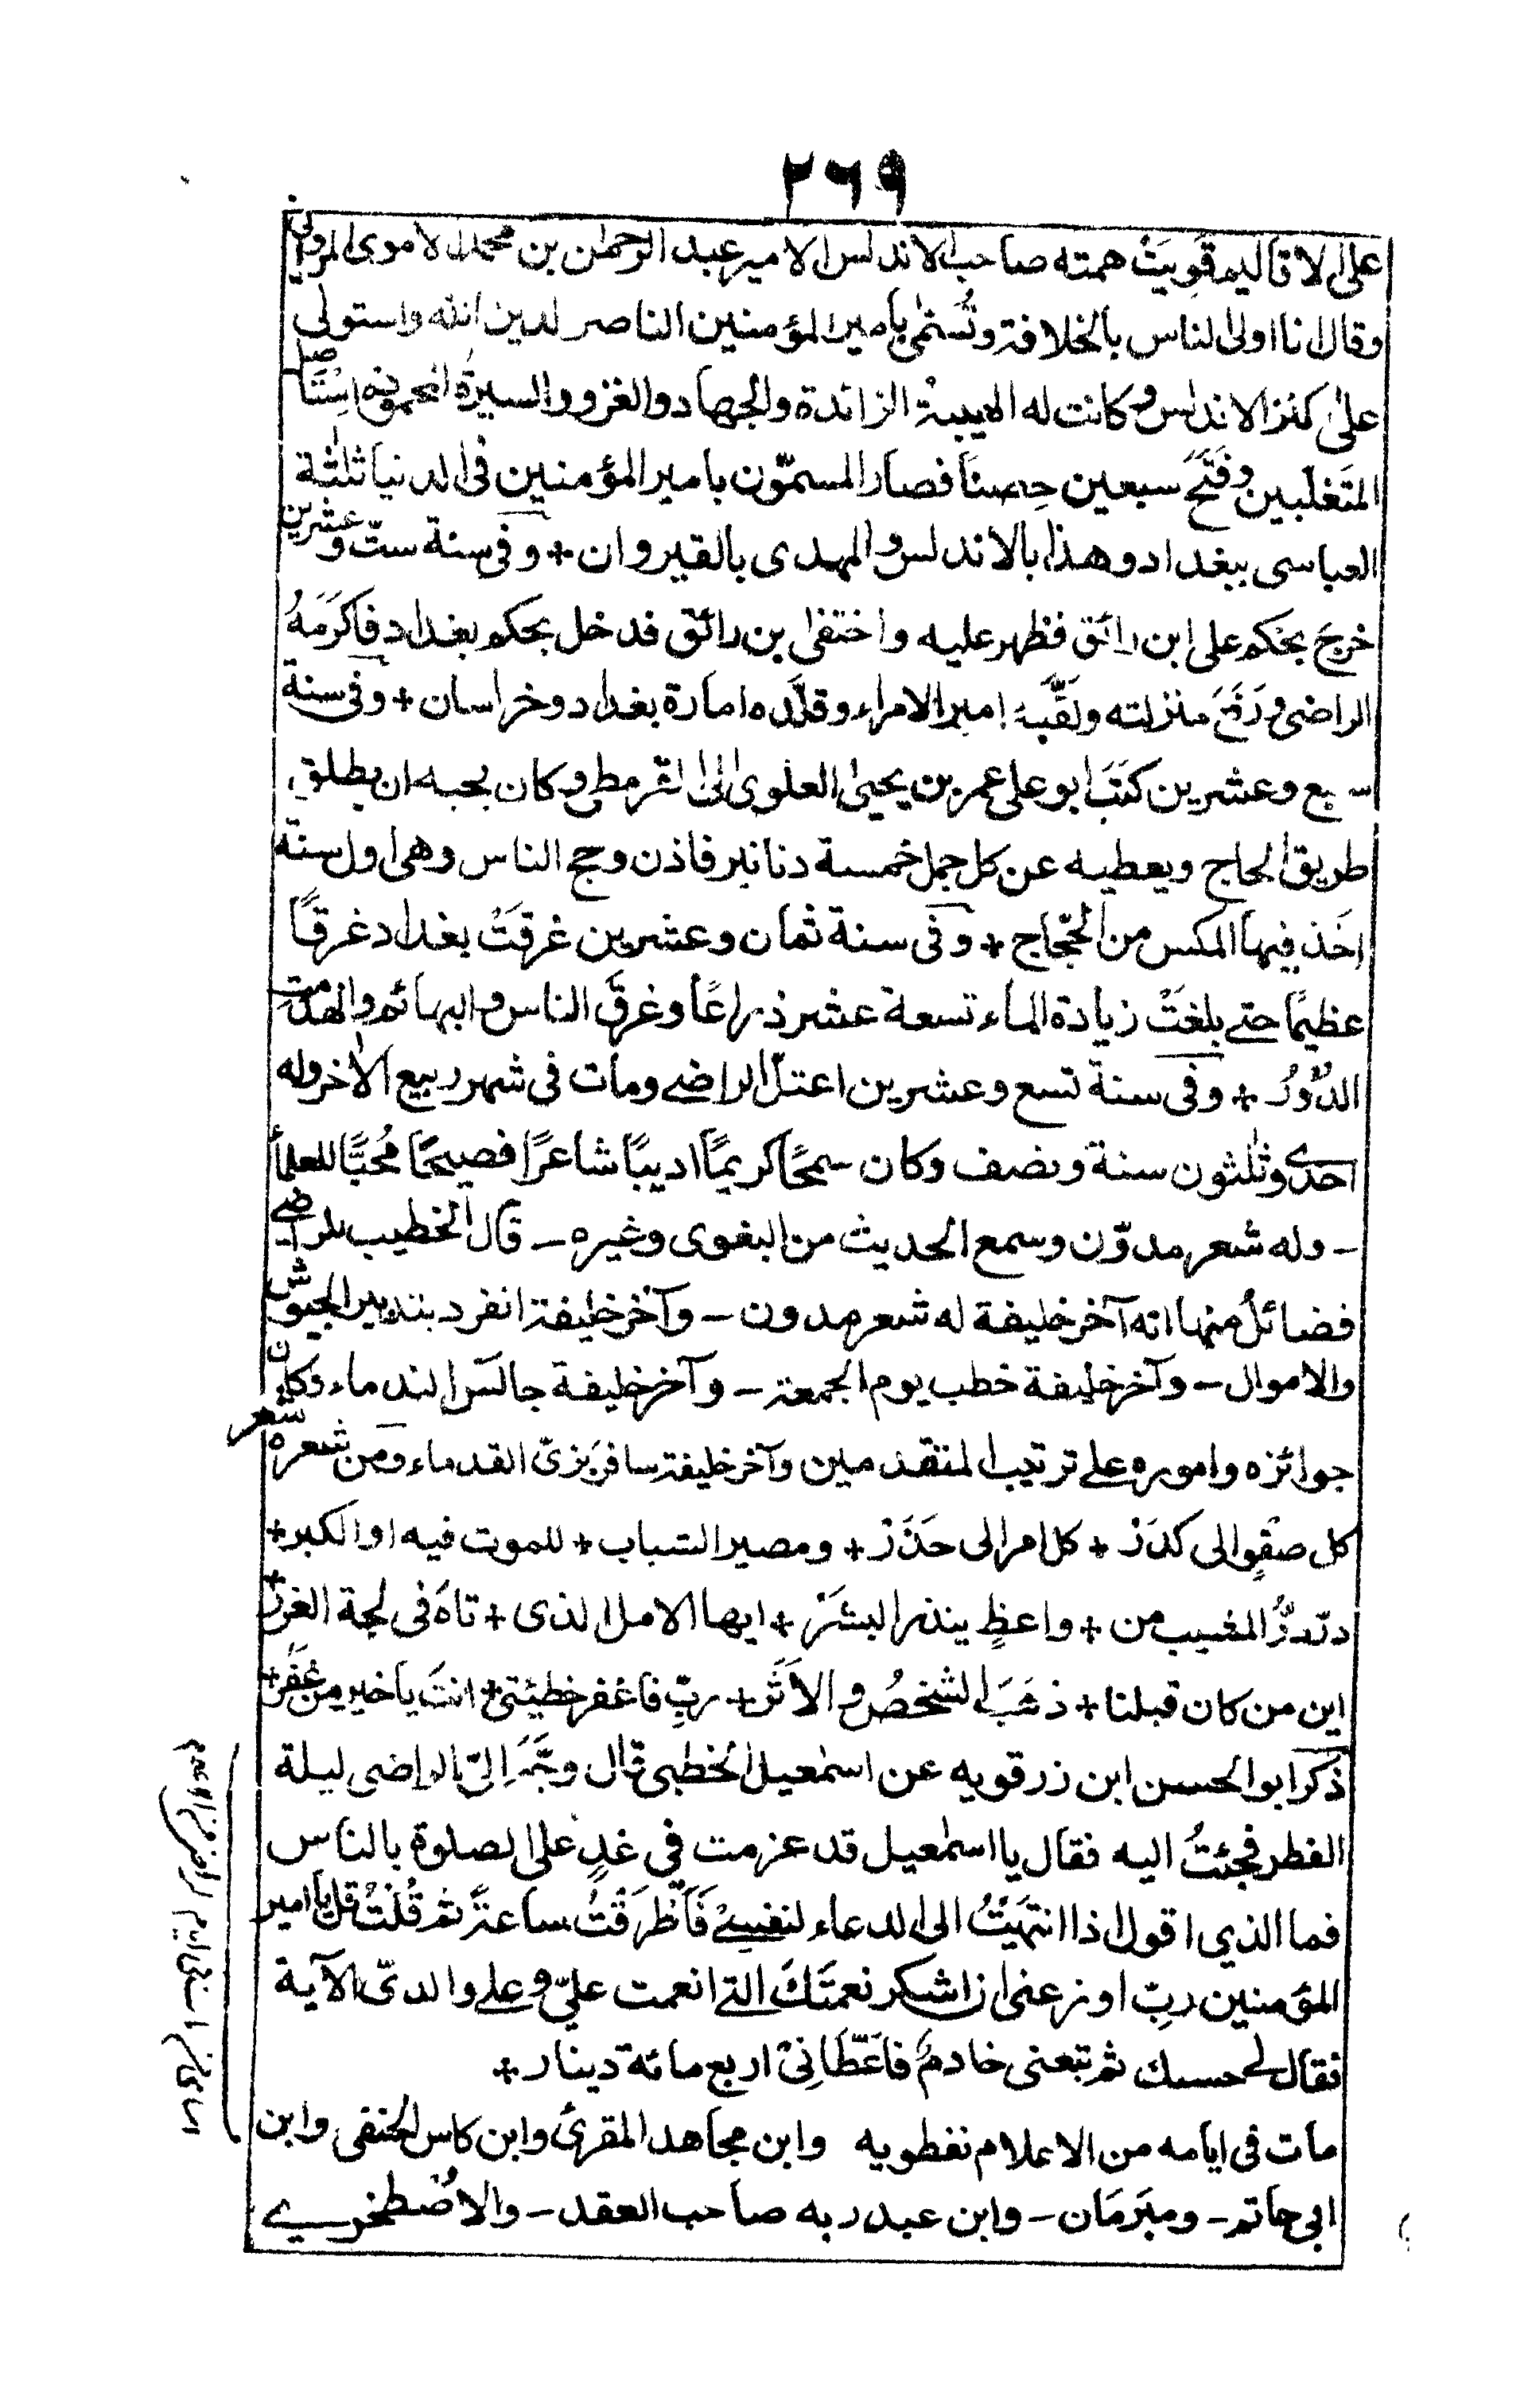 ٢٦٩
على الاقاليم قَوِيَتْ همته صاحب الاندلس الامير عبد الرحمٰن بن محمد الاموى المروانى
وقال انا اولى الناس بالخلافة وتُسَمّٰى بأمير المؤمنين الناصر لدين الله واستولى
علىٰ كثر الاندلس وكانت له الهيبة الزائدة والجهاد والغزو والسيرة المحمودة اِسْتَاصل
المتَغَلّبين وفَتَحَ سبعين حِصنًا فصار المسمّون بامير المؤمنين فى الدنيا ثلٰثة
العباسى ببغداد وهذا بالاندلس والمهدى بالقيروان + وفى سنة ستّ وعشرين
خرجَ بحكم على ابن رائق فظهر عليه واختفى بن رائق فدخل بحكم بغداد فاكرَمَهُ
الراضى ورَفَعَ منزلته ولَقَّبَهُ امير الامراء وقلَّده امارة بغداد وخراسان + وفى سنة
سبع وعشرين كتَبَ ابو على عمر بن يحيىٰ العلوى الى القرمطى وكان يحبه ان يطلق
طريق الحاج ويعطيه عن كل جمل خمسة دنانير فاذن وحج الناس وهى اول سنة
اخذ فيها المكس من الحُجّاج + وفى سنة ثمان وعشرين غرقَتْ بغداد غرقًا
عظيمًا حتے بلغَتْ زيادة الماء تسعة عشر ذراعًا وغرقَ الناس والبهائم والهدمت
الدُّوْرُ + وفى سنة تسع وعشرين اعتلّ الراضے ومات فى شهر ربيع الاٰخر وله
احدى وثلٰثون سنة ونصف وكان سمحًا كريمًا اديبًا شاعرًا فصيحًا مُحبًّا للعلمأ
– وله شعر مدوّن وسمع الحديث من البغوى وغيره – قال الخطيب للراضے
فضائلُ منها انه آخر خليفة له شعر مدون – وآخر خليفة انفرد بتدبير الجيوش
والاموال – وآخر خليفة خطب يوم الجمعة – وآخر خليفة جالسَ الندماء وكان
جوائزه واموره علے ترتيب المتقدمين وآخر خليفة سافر بزىّ القدماء ومن شعره شعر
كل صَفْوٍ الى كدَرْ + كل امر الى حَذَرْ + ومصير الشباب + للموت فيه او الكبر +
درّ درُّ المشيب من + واعظٍ ينذر البشَرْ + ايها الامل الذى + تاهَ فى لجة الغرر +
اين من كان قبلنا + ذهَبَ الشخصُ والاَثَر + ربِّ فاغفر خطيئتى + انتَ يا خير من غَفَر +
ذكر ابو الحسن ابن زرقويه عن اسمٰعيل الخطبى قال وجَّهَ اِلىّ الراضى ليلة
الفطر فجئتُ اليه فقال يا اسمٰعيل قد عزمت في غدٍ على الصلوة بالناس
فما الذي اقول اذا انتهَيْتُ الى الدعاء لنفسِےْ فَأَطْرَقْتُ ساعةً ثم قُلْتُ قل يا امير
المؤمنين ربِّ اوزعنى ان اشكر نعمتَكَ التے انعمت عليّ وعلے والدىّ الآية
فقال لے حسبك ثم تبعنى خادمٌ فاَعْطَانِىْ اربع مائة دينار +
مات فى ايامه من الاعلام نفطويه وابن مجاهد المقرئ وابن كاس الحنفى وابن
ابى حاتم – ومبرَمَان – وابن عبد ربه صاحب العقد – والاصْطخرے